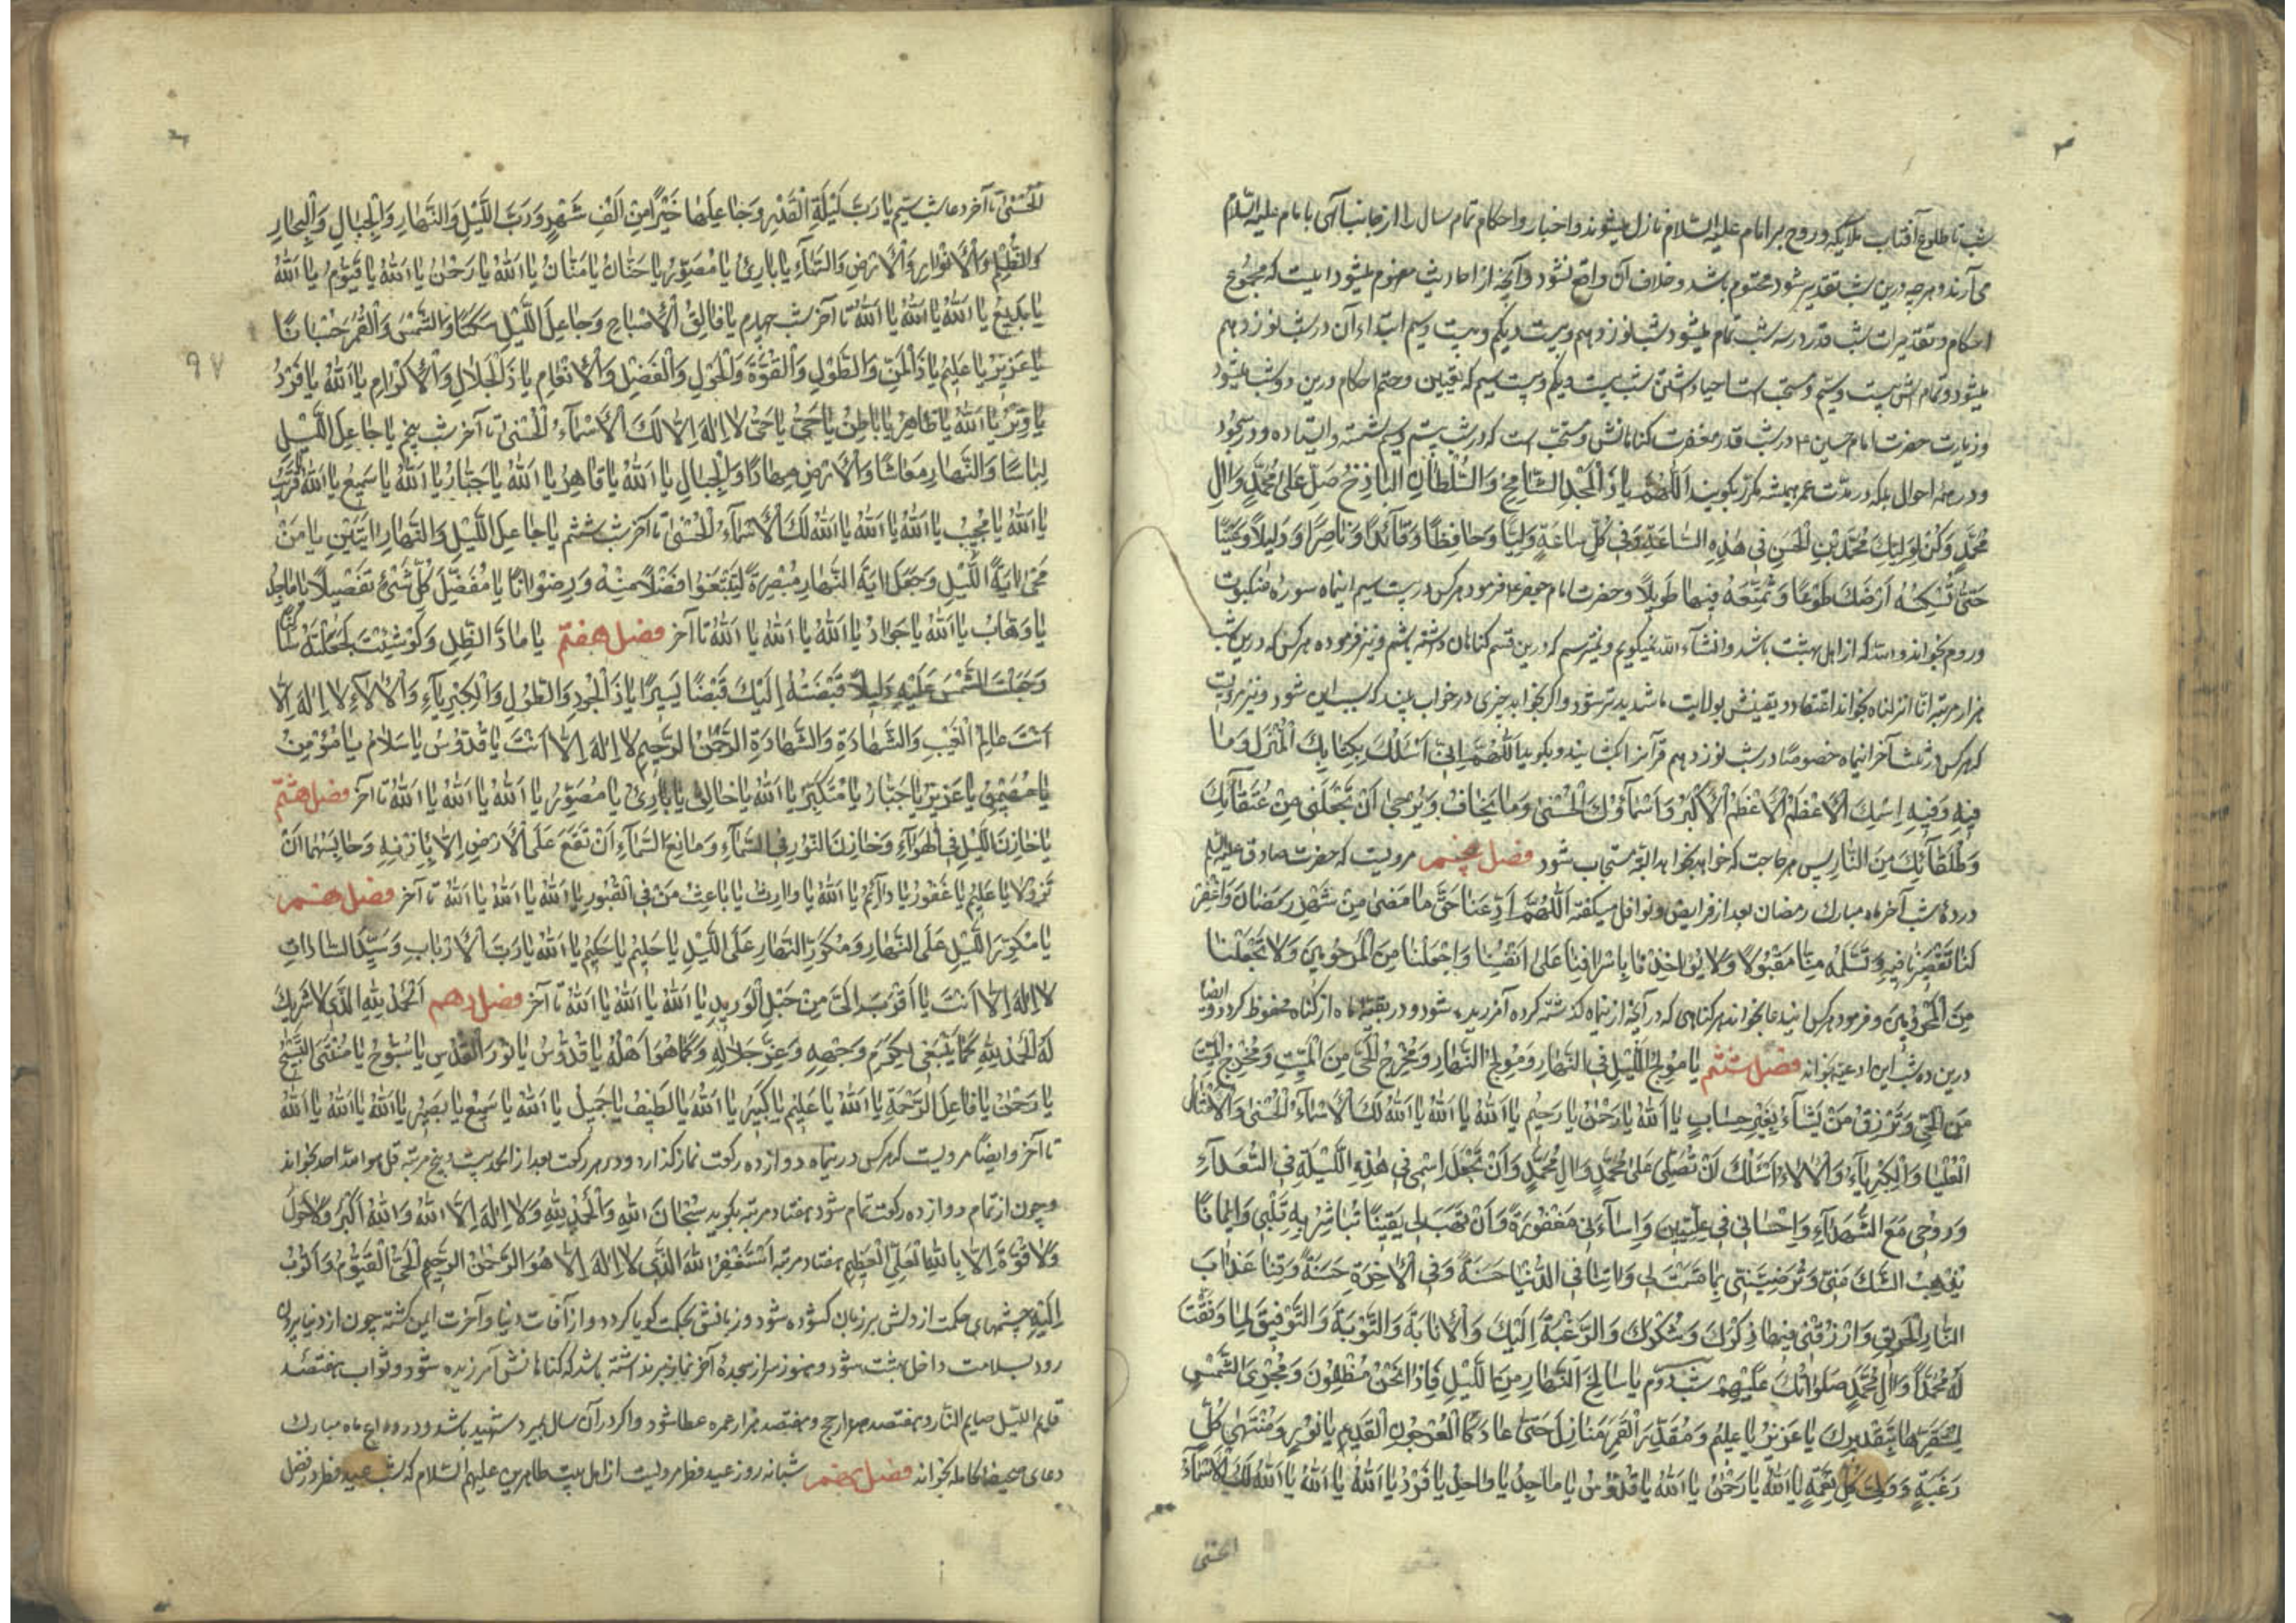 شب تا طلوع آفتاب ملایکه و روح بر امام علیه السلام نازل میشوند و اخبار و احکام تمام سال را از جانب الهی با امام علیه السلام
می آرند و هرچه درین شب تقدیر شود محتوم باشد و خلاف آن واقع نشود و آنچه از احادیث مفهوم میشود اینست که مجموع
احکام و تقدیرات شب قدر در سه شب تمام میشود شب نوزدهم و بیست و یکم و بیست و سیم ابتداء آن در شب نوزدهم
میشود و تمامش بیست و سیم و مستحب است احیا داشتن شب بیست و یکم و بیست سیم که تعیین و حتم احکام درین دو شب میشود
و زیارت حضرت امام حسین ع در شب قدر مغفرت گناهانش و مستحب است که در شب بیستم و سیم نشسته و ایستاده و در سجود
و در همه احوال بلکه در مدت عمر همیشه مکرر بگویند اَللّٰهُمَّ یا ذَا الْمَجْدِ الشّامِخِ وَالسُّلْطانِ الْباذِخِ صَلِّ عَلیٰ مُحَمَّدٍ وَآلِ
مُحَمَّدٍ وَکُنْ لِوَلِیِّکَ مُحَمَّدِ بْنِ الْحَسَنِ فی هٰذِهِ السّاعَةِ وَفی کُلِّ ساعَةٍ وَلِیًّا وَحافِظًا وَقآئِدًا وَناصِرًا وَدَلیلاً وَعَیْنًا
حَتّیٰ تُسْکِنَهُ اَرْضَکَ طَوْعًا وَتُمَتِّعَهُ فیها طَویلاً و حضرت امام جعفر ع فرمود هرکس در بیست سیم اینماه سوره عنکبوت
و روم بخواند والله که از اهل بهشت باشد و انشاء الله نمیگویم و نمیترسم که درین قسم گناهان داشته باشم و نیز فرموده هرکس که درین شب
هزار مرتبه انا انزلناه بخواند اعتقاد و یقینش بولایت ما شدیدتر شود و اگر بخوابد چیزی در خواب بیند که سبب این شود و نیز مرویست
که هرکس در ثلث آخر اینماه خصوصًا در شب نوزدهم قرآنرا بکشایند و بگوید اَللّٰهُمَّ اِنّی اَسْئَلُکَ بِکِتابِکَ الْمُنْزَلِ وَما
فیهِ وَفیهِ اِسْمُکَ الْاَعْظَمُ الْاَعْظَمُ الْاَکْبَرُ وَاَسْمآؤُکَ الْحُسْنیٰ وَما یُخافُ وَیُرْجیٰ اَنْ تَجْعَلَنی مِنْ عُتَقآئِکَ
وَطُلَقآئِکَ مِنَ النّارِ پس هر حاجت که خواهد بخواهد البته مستجاب شود فصل پنجم مرویست که حضرت صادق علیه السلام
در ده شب آخر ماه مبارک رمضان بعد از فرایض و نوافل میگفته اَللّٰهُمَّ اَدِّ عَنّا حَقَّ ما مَضیٰ مِنْ شَهْرِ رَمَضانَ وَاغْفِرْ
لَنا تَقْصیرَنا فیهِ وَتَسَلَّمْهُ مِنّا مَقْبُولاً وَلا تُؤاخِذْنا بِاِسْرافِنا عَلیٰ اَنْفُسِنا وَاجْعَلْنا مِنَ الْمَرْحُومینَ وَلا تَجْعَلْنا
مِنَ الْمَحْرُومینَ و فرمود هرکس این دعا بخواند هر گناهی که در آنچه از نماه گذشته کرده آمرزیده شود و در بقیه ماه از گناه محفوظ گردد و ایضا
درین ده شب این ادعیه بخواند فصل ششم یا مُولِجَ اللَّیْلِ فی النَّهارِ وَمُولِجَ النَّهارِ وَمُخْرِجَ الْحَیِّ مِنَ الْمَیِّتِ وَمُخْرِجَ الْمَیِّتِ
مِنَ الْحَیِّ وَتَرْزُقُ مَنْ یَشآءُ بِغَیْرِ حِسابٍ یا اَللّٰهُ یا رَحْمٰنُ یا رَحیمُ یا اَللّٰهُ یا اَللّٰهُ یا اَللّٰهُ لَکَ الْاَسْمآءُ الْحُسْنیٰ وَالْاَمْثالُ
الْعُلْیا وَالْکِبْرِیآءُ وَالْآلآءُ اَسْئَلُکَ اَنْ تُصَلِّیَ عَلیٰ مُحَمَّدٍ وَآلِ مُحَمَّدٍ وَاَنْ تَجْعَلَ اسْمی فی هٰذِهِ اللَّیْلَةِ فِی السُّعَدآءِ
وَرُوحی مَعَ الشُّهَدآءِ وَاِحْسانی فی عِلِّیّینَ وَاِسآءَتی مَغْفُورَةً وَاَنْ تَهَبَ لی یَقینًا تُباشِرُ بِهِ قَلْبی وَایمانًا
یُذْهِبُ الشَّکَّ مَنّی وَتُرْضِیَنی بِما قَسَمْتَ لی وَآتِنا فِی الدُّنْیا حَسَنَةً وَفِی الْآخِرَةِ حَسَنَةً وَقِنا عَذابَ
النّارِ الْحَریقِ وَارْزُقْنی فیها ذِکْرَکَ وَشُکْرَکَ وَالرَّغْبَةَ اِلَیْکَ وَالْاِنابَةَ وَالتَّوْبَةَ وَالتَّوْفیقَ لِما وَفَّقْتَ
لَهُ مُحَمَّدًا وَآلَ مُحَمَّدٍ صَلَواتُکَ عَلَیْهِمْ شب دوم یا سالِخَ النَّهارِ مِنَ اللَّیْلِ فَاِذا نَحْنُ مُظْلِمُونَ وَمُجْرِیَ الشَّمْسِ
لِمُسْتَقَرِّها بِتَقْدیرِکَ یا عَزیزُ یا عَلیمُ وَمُقَدِّرَ الْقَمَرِ مَنازِلَ حَتّیٰ عادَ کَالْعُرْجُونِ الْقَدیمِ یا نُورَ وَمُنْتَهیٰ کُلِّ
رَغْبَةٍ وَوَلِیَّ کُلِّ نِعْمَةٍ یا اَللّٰهُ یا رَحْمٰنُ یا اَللّٰهُ یا قُدُّوسُ یا ماجِدُ یا واحِدُ یا فَرْدُ یا اَللّٰهُ یا اَللّٰهُ یا اَللّٰهُ لَکَ الْاَسْمآءُ
الحسنی
الْحُسْنیٰ تا آخر دعا شب سیم یا رَبَّ لَیْلَةِ الْقَدْرِ وَجاعِلَها خَیْرًا مِنْ اَلْفِ شَهْرٍ وَرَبَّ اللَّیْلِ وَالنَّهارِ وَالْجِبالِ وَالْبِحارِ
وَالظُّلَمِ وَالْاَنْوارِ وَالْاَرْضِ وَالسَّمآءِ یا بارِئُ یا مُصَوِّرُ یا حَنّانُ یا مَنّانُ یا اَللّٰهُ یا رَحْمٰنُ یا اَللّٰهُ یا قَیُّومُ یا اَللّٰهُ
یا بَدیعُ یا اَللّٰهُ یا اَللّٰهُ یا اَللّٰهُ تا آخر شب چهارم یا فالِقَ الْاِصْباحِ وَجاعِلَ اللَّیْلِ سَکَنًا وَالشَّمْسَ وَالْقَمَرَ حُسْبانًا
یا عَزیزُ یا عَلیمُ یا ذَا الْمَنِّ وَالطَّوْلِ وَالْقُوَّةِ وَالْحَوْلِ وَالْفَضْلِ وَالْاِنْعامِ یا ذَا الْجَلالِ وَالْاِکْرامِ یا اَللّٰهُ یا فَرْدُ
۹۷
یا وِتْرُ یا اَللّٰهُ یا ظاهِرُ یا باطِنُ یا حَیُّ یا حَیُّ لا اِلٰهَ اِلّا لَکَ الْاَسْمآءُ الْحُسْنیٰ تا آخر شب پنجم یا جاعِلَ اللَّیْلِ
لِباسًا وَالنَّهارِ مَعاشًا وَالْاَرْضِ مِهادًا وَالْجِبالِ یا اَللّٰهُ یا قاهِرُ یا اَللّٰهُ یا جَبّارُ یا اَللّٰهُ یا سَمیعُ یا اَللّٰهُ قَریبُ
یا اَللّٰهُ یا مُجیبُ یا اَللّٰهُ یا اَللّٰهُ یا اَللّٰهُ لَکَ الْاَسْمآءُ الْحُسْنیٰ تا آخر شب ششم یا جاعِلَ اللَّیْلِ وَالنَّهارِ ایَتَیْنِ یا مَنْ
مَحیٰ ایَةَ اللَّیْلِ وَجَعَلَ ایَةَ النَّهارِ مُبْصِرَةً لِتَبْتَغُوا فَضْلاً مِنْهُ وَرِضْوانًا یا مُفَصِّلَ کُلِّ شَیْئٍ تَفْصیلاً یا ماجِدُ
یا وَهّابُ یا اَللّٰهُ یا جَوادُ یا اَللّٰهُ یا اَللّٰهُ یا اَللّٰهُ تا آخر فصل هفتم یا مادَّ الظِّلِّ وَلَوْ شِئْتَ لَجَعَلْتَهُ ساکِنًا
وَجَعَلْتَ الشَّمْسَ عَلَیْهِ دَلیلاً قَبَضْتَهُ اِلَیْکَ قَبْضًا یَسیرًا یا ذَا الْجُودِ وَالطَّوْلِ وَالْکِبْرِیآءِ وَالْآلآءِ لا اِلٰهَ اِلّا
اَنْتَ عالِمَ الْغَیْبِ وَالشَّهادَةِ وَالشَّهادَةِ الرَّحْمٰنَ الرَّحیمَ لا اِلٰهَ اِلّا اَنْتَ یا قُدُّوسُ یا سَلامُ یا مُؤْمِنُ
یا مُهَیْمِنُ یا عَزیزُ یا جَبّارُ یا مُتَکَبِّرُ یا اَللّٰهُ یا خالِقُ یا بارِئُ یا مُصَوِّرُ یا اَللّٰهُ یا اَللّٰهُ یا اَللّٰهُ تا آخر فصل هشتم
یا خازِنَ اللَّیْلِ فی الْهَوآءِ وَخازِنَ النُّورِ فی السَّمآءِ وَمانِعَ السَّمآءِ اَنْ تَقَعَ عَلَی الْاَرْضِ اِلّا بِاِذْنِهِ وَحابِسَهُما اَنْ
تَزُولا یا عَلیمُ یا غَفُورُ یا دآئِمُ یا اَللّٰهُ یا وارِثُ یا باعِثَ مَنْ فی الْقُبُورِ یا اَللّٰهُ یا اَللّٰهُ یا اَللّٰهُ تا آخر فصل نهم
یا مُکَوِّرَ اللَّیْلِ عَلَی النَّهارِ وَمُکَوِّرَ النَّهارِ عَلَی اللَّیْلِ یا حَلیمُ یا حَکیمُ یا اَللّٰهُ یا رَبَّ الْاَرْبابِ وَسَیِّدَ السّاداتِ
لا اِلٰهَ اِلّا اَنْتَ یا اَقْرَبَ اِلَیَّ مِنْ حَبْلِ الْوَریدِ یا اَللّٰهُ یا اَللّٰهُ یا اَللّٰهُ تا آخر فصل دهم اَلْحَمْدُ لِلّٰهِ الَّذی لا شَریکَ
لَهُ الْحَمْدُ لِلّٰهِ کَما یَنْبَغی لِکَرَمِ وَجْهِهِ وَعِزِّ جَلالِهِ وَکَما هُوَ اَهْلُهُ یا قُدُّوسُ یا نُورَ الْقُدْسِ یا سُبُّوحُ یا مُنْتَهَی التَّسْبیحِ
یا رَحْمٰنُ یا فاعِلَ الرَّحْمَةِ یا اَللّٰهُ یا عَلیمُ یا کَبیرُ یا اَللّٰهُ یا لَطیفُ یا جَمیلُ یا اَللّٰهُ یا سَمیعُ یا بَصیرُ یا اَللّٰهُ یا اَللّٰهُ یا اَللّٰهُ
تا آخر و ایضًا مرویست که هرکس در نیماه دوازده رکعت نماز گذارد و در هر رکعت بعد از الحمد بیست و پنج مرتبه قل هو الله احد بخواند
و چون از تمام دوازده رکعت تمام شود هفتاد مرتبه بگوید سُبْحانَ اللّٰهِ وَالْحَمْدُ لِلّٰهِ وَلا اِلٰهَ اِلّا اللّٰهُ وَاللّٰهُ اَکْبَرُ وَلا حَوْلَ
وَلا قُوَّةَ اِلّا بِاللّٰهِ الْعَلِیِّ الْعَظیمِ هفتاد مرتبه اَسْتَغْفِرُ اللّٰهَ الَّذی لا اِلٰهَ اِلّا هُوَ الرَّحْمٰنُ الرَّحیمُ الْحَیُّ الْقَیُّومُ وَاَتُوبُ
اِلَیْهِ چشمهای حکمت از دلش بر زبان گشوده شود و زبانش بحکمت گویا گردد و از آفات دنیا و آخرت ایمن گشته چون از دنیا بیرون
رود بسلامت داخل بهشت شود و هنوز سر از سجدهٔ آخر نماز بر نداشته باشد که گناهانش آمرزیده شود و ثواب هفتصد
قایم اللیل صایم النهار و هفتصد هزار حج و هفتصد هزار عمره عطا شود و اگر در آن سال بمیرد شهید باشد و در وداع ماه مبارک
دعای صحیفه کامله بخواند فصل شبانه روز عید فطر مرویست از اهل بیت طاهرین علیهم السلام که شب عید فطر در فضل